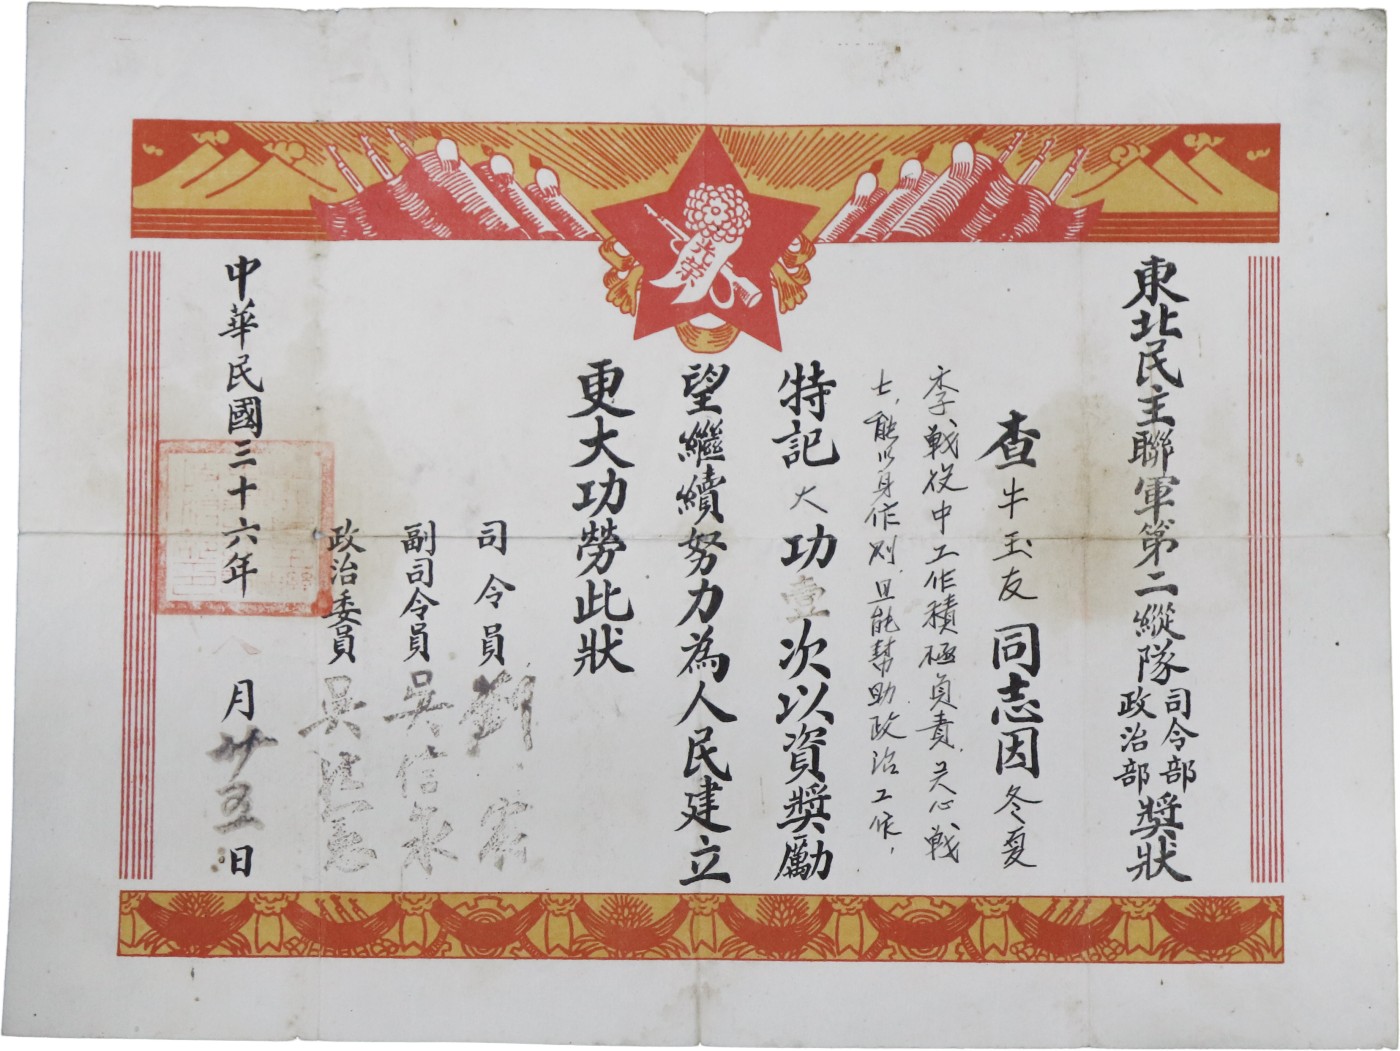 東北民主聯軍第二縱隊司令部政治部獎狀
查牛玉友同志因冬夏
季战役中工作積極負責、关心战
士,能以身作则,且能幫助政治工作,
特記大功壹次以資獎勵
望繼續努力為人民建立
更大功勞此狀
司令員劉
副司令員吳信
政治委員吳
中華民國三十六年八月廿五日
光荣